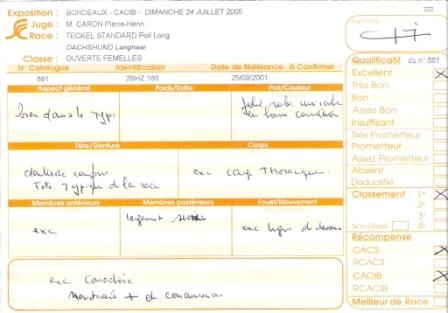 222
Exposition : BORDEAUX - CACIB - DIMANCHE 24 JUILLET 2005
Juge : M. CARON Pierre-Henri
Race : TECKEL STANDARD Poil Long
DACHSHUND Langhaar
Classe : OUVERTE FEMELLES
Signature
N° Catalogue Identification Date de Naissance à Confirmer
881 2BHZ 165 25/09/2001
Qualificatif du n° 881
Excellent
Très Bon
Bon
Assez Bon
Insuffisant
Très Prometteur
Prometteur
Assez Prometteur
Absent
Disqualifié
Aspect général Poids/Taille Poil/Couleur
bien dans le type
jolie robe
en bonne condition
Tête/Denture Corps
denture
Tête Typique de la race
exc cage Thoracique
Membres antérieurs Membres postérieurs Fouet/Mouvement
exc
légèrement
exc ligne de dessus
exc Caractère
+ de
Classement 1°
2°
3°
Non Classé 4°
Récompense
CACS
RCACS
CACIB
RCACIB
Meilleur de Race